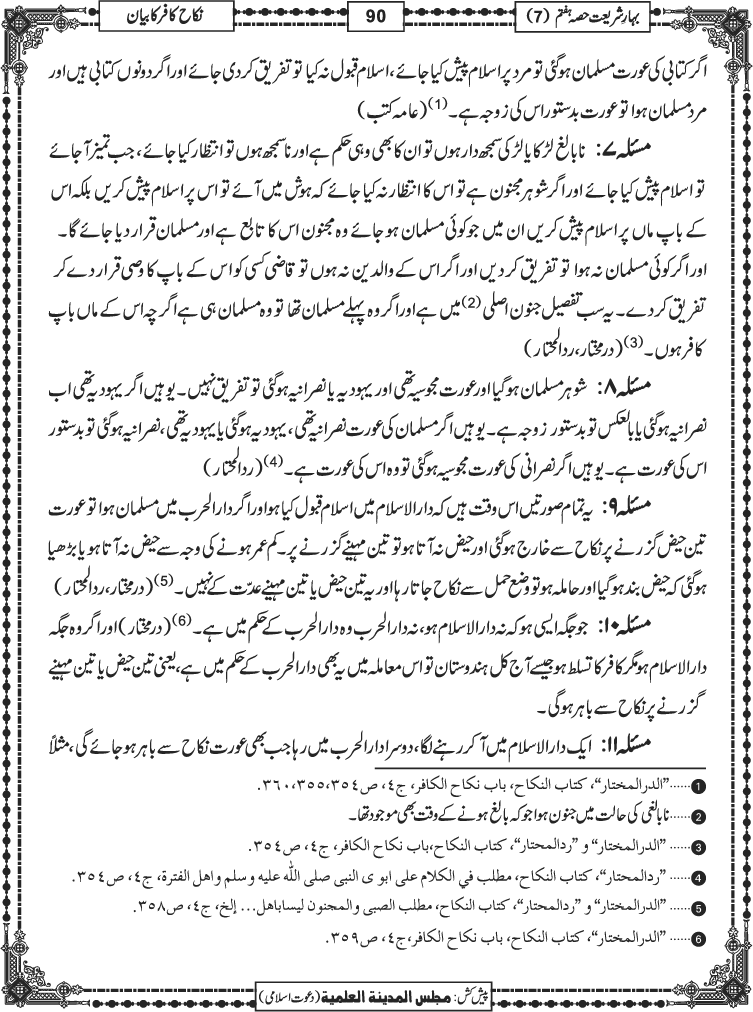 بہارِ شریعت حصہ ہفتم (7)
90
نکاح کافر کا بیان
اگر کتابی کی عورت مسلمان ہوگئی تو مرد پر اسلام پیش کیا جائے، اسلام قبول نہ کیا تو تفریق کر دی جائے اور اگر دونوں کتابی ہیں اور
مرد مسلمان ہوا تو عورت بدستور اس کی زوجہ ہے۔(1) (عامہ کتب)
مسئلہ ۷: نابالغ لڑکا یا لڑکی سمجھ دار ہوں تو ان کا بھی وہی حکم ہے اور ناسمجھ ہوں تو انتظار کیا جائے، جب تمیز آجائے
تو اسلام پیش کیا جائے اور اگر شوہر مجنون ہے تو اس کا انتظار نہ کیا جائے کہ ہوش میں آئے تو اس پر اسلام پیش کریں بلکہ اس
کے باپ ماں پر اسلام پیش کریں ان میں جو کوئی مسلمان ہو جائے وہ مجنون اس کا تابع ہے اور مسلمان قرار دیا جائے گا۔
اور اگر کوئی مسلمان نہ ہوا تو تفریق کر دیں اور اگر اس کے والدین نہ ہوں تو قاضی کسی کو اس کے باپ کا وصی قرار دے کر
تفریق کر دے۔ یہ سب تفصیل جنون اصلی(2) میں ہے اور اگر وہ پہلے مسلمان تھا تو وہ مسلمان ہی ہے اگرچہ اس کے ماں باپ
کافر ہوں۔(3) (درمختار، ردالمحتار)
مسئلہ ۸: شوہر مسلمان ہوگیا اور عورت مجوسیہ تھی اور یہودیہ یا نصرانیہ ہوگئی تو تفریق نہیں۔ یوہیں اگر یہودیہ تھی اب
نصرانیہ ہوگئی یا بالعکس تو بدستور زوجہ ہے۔ یوہیں اگر مسلمان کی عورت نصرانیہ تھی، یہودیہ ہوگئی یا یہودیہ تھی، نصرانیہ ہوگئی تو بدستور
اس کی عورت ہے۔ یوہیں اگر نصرانی کی عورت مجوسیہ ہوگئی تو وہ اس کی عورت ہے۔(4) (ردالمحتار)
مسئلہ ۹: یہ تمام صورتیں اس وقت ہیں کہ دارالاسلام میں اسلام قبول کیا ہو اور اگر دارالحرب میں مسلمان ہوا تو عورت
تین حیض گزرنے پر نکاح سے خارج ہوگئی اور حیض نہ آتا ہو تو تین مہینے گزرنے پر۔ کم عمر ہونے کی وجہ سے حیض نہ آتا ہو یا بڑھیا
ہوگئی کہ حیض بند ہوگیا اور حاملہ ہو تو وضع حمل سے نکاح جاتا رہا اور یہ تین حیض یا تین مہینے عدّت کے نہیں۔(5) (درمختار، ردالمحتار)
مسئلہ ۱۰: جو جگہ ایسی ہو کہ نہ دارالاسلام ہو، نہ دارالحرب وہ دارالحرب کے حکم میں ہے۔(6) (درمختار) اور اگر وہ جگہ
دارالاسلام ہو مگر کافر کا تسلط ہو جیسے آج کل ہندوستان تو اس معاملہ میں یہ بھی دارالحرب کے حکم میں ہے، یعنی تین حیض یا تین مہینے
گزرنے پر نکاح سے باہر ہوگی۔
مسئلہ ۱۱: ایک دارالاسلام میں آکر رہنے لگا، دوسرا دارالحرب میں رہا جب بھی عورت نکاح سے باہر ہو جائے گی، مثلاً
1 ......"الدرالمختار"، کتاب النکاح، باب نکاح الکافر، ج٤، ص٣٥٤،٣٥٥،٣٦٠.
2 ......نابالغی کی حالت میں جنون ہوا جو کہ بالغ ہونے کے وقت بھی موجود تھا۔
3 ......"الدرالمختار" و "ردالمحتار"، کتاب النکاح، باب نکاح الکافر، ج٤، ص٣٥٤.
4 ......"ردالمحتار"، کتاب النکاح، مطلب في الکلام علی ابو ی النبی صلی الله علیه وسلم واهل الفترة، ج٤، ص٣٥٤.
5 ......"الدرالمختار" و "ردالمحتار"، کتاب النکاح، مطلب الصبی والمجنون لیساباهل... إلخ، ج٤، ص٣٥٨.
6 ......"الدرالمختار"، کتاب النکاح، باب نکاح الکافر، ج٤، ص٣٥٩.
پیش کش: مجلس المدینة العلمیة (دعوت اسلامی)